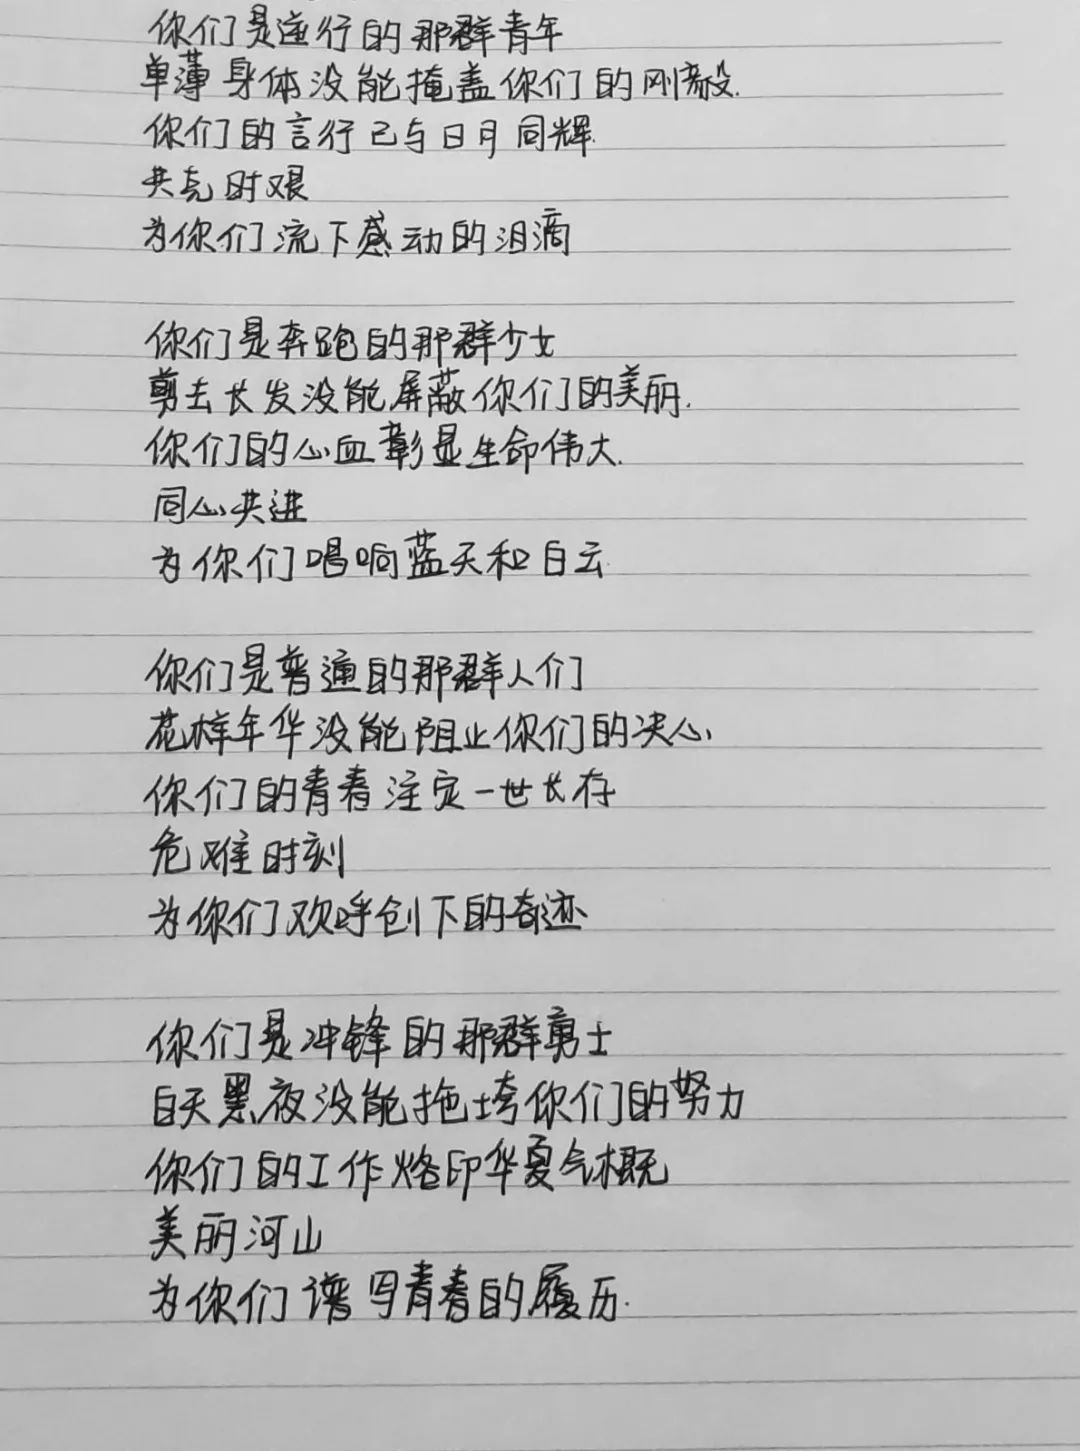 你们是逆行的那群青年
单薄身体没能掩盖你们的刚毅.
你们的言行已与日月同辉.
共克时艰
为你们流下感动的泪滴
你们是奔跑的那群少女
剪去长发没能屏蔽你们的美丽.
你们的心血彰显生命伟大.
同心共进
为你们唱响蓝天和白云.
你们是普通的那群人们
花样年华没能阻止你们的决心
你们的青春注定一世长存
危难时刻
为你们欢呼创下的奇迹
你们是冲锋的那群勇士
白天黑夜没能拖垮你们的努力
你们的工作烙印华夏气概
美丽河山
为你们谱写青春的履历.